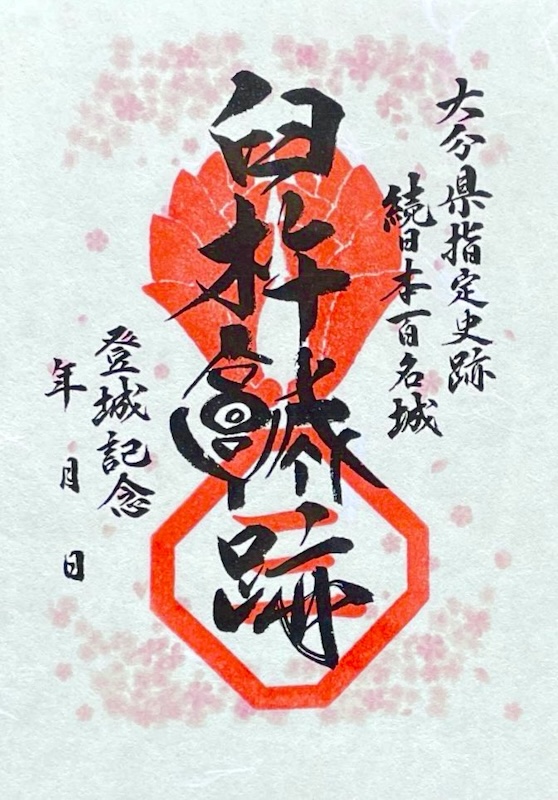 大分県指定史跡
続日本百名城
臼杵城跡
登城記念
年 月 日